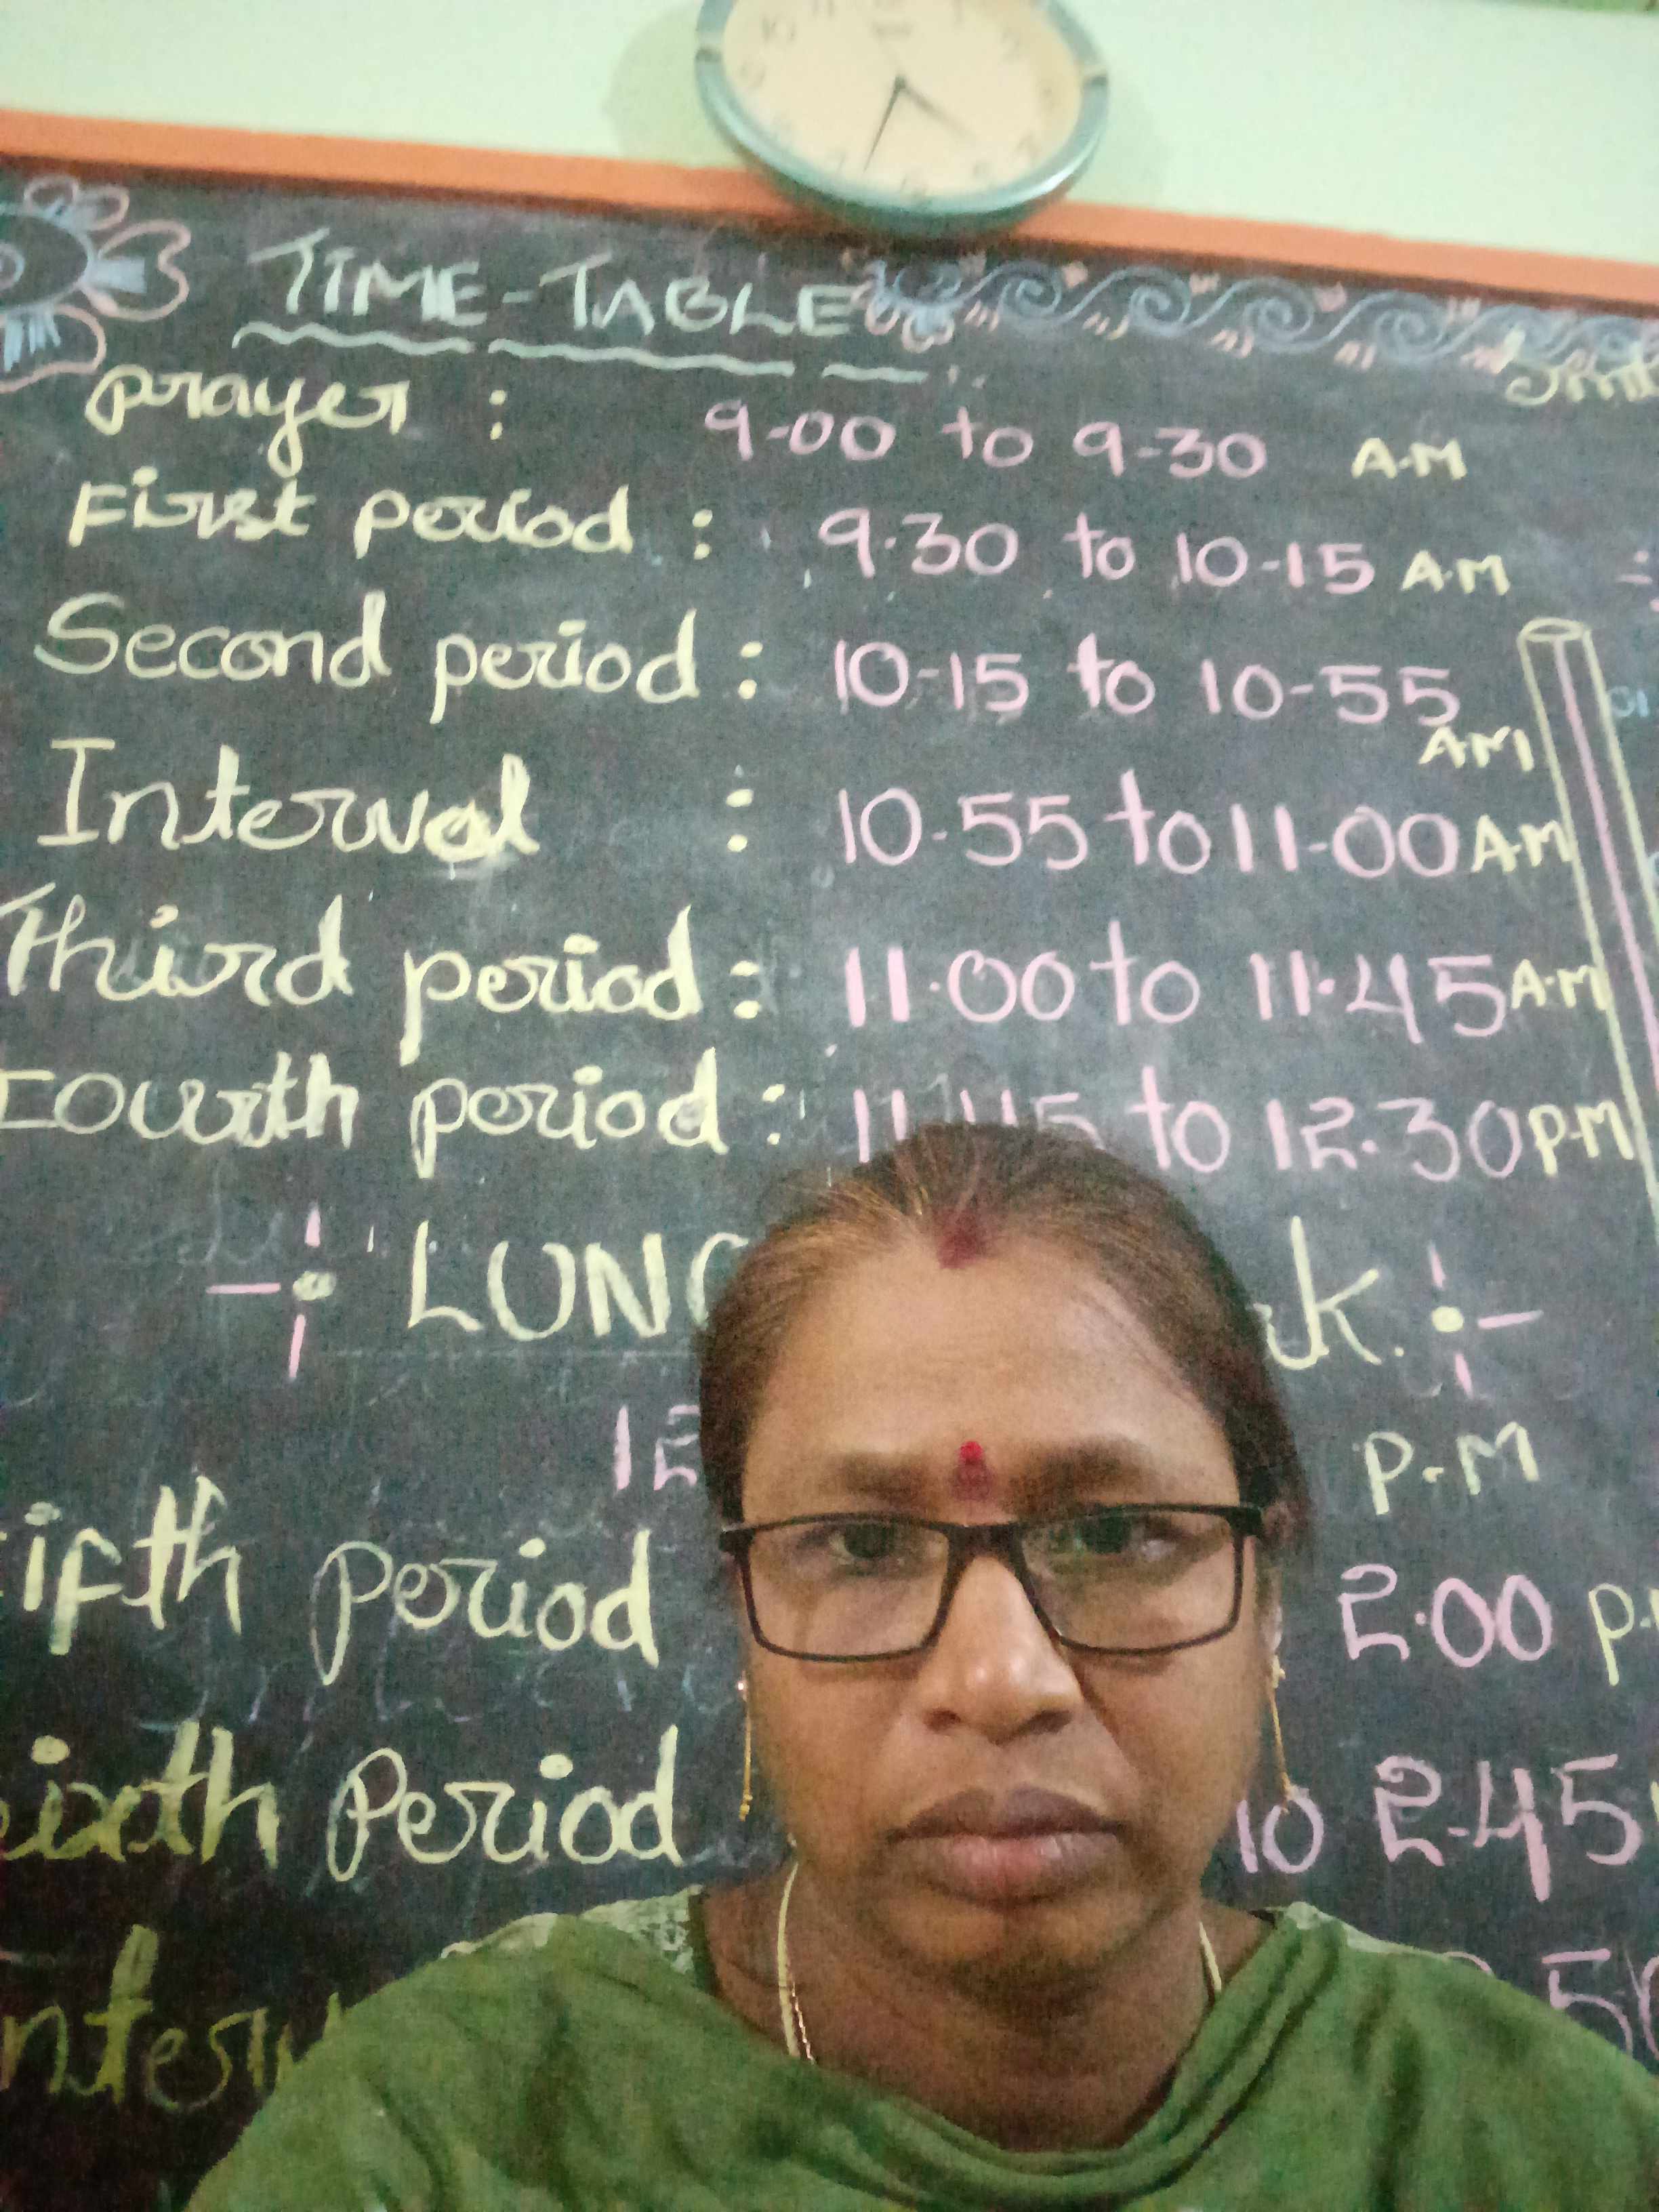 TIME-TABLE
Prayer : 9-00 to 9-30 A.M
First period : 9.30 to 10-15 A.M
Second period : 10-15 to 10-55 AM
Interval : 10.55 to 11-00 AM
Third period : 11.00 to 11.45 A.M
Fourth period : 11.45 to 12.30 P.M
LUNC k.
12 P.M
ifth Period 2.00 P.
ixth Period to 2-45
nterv 50